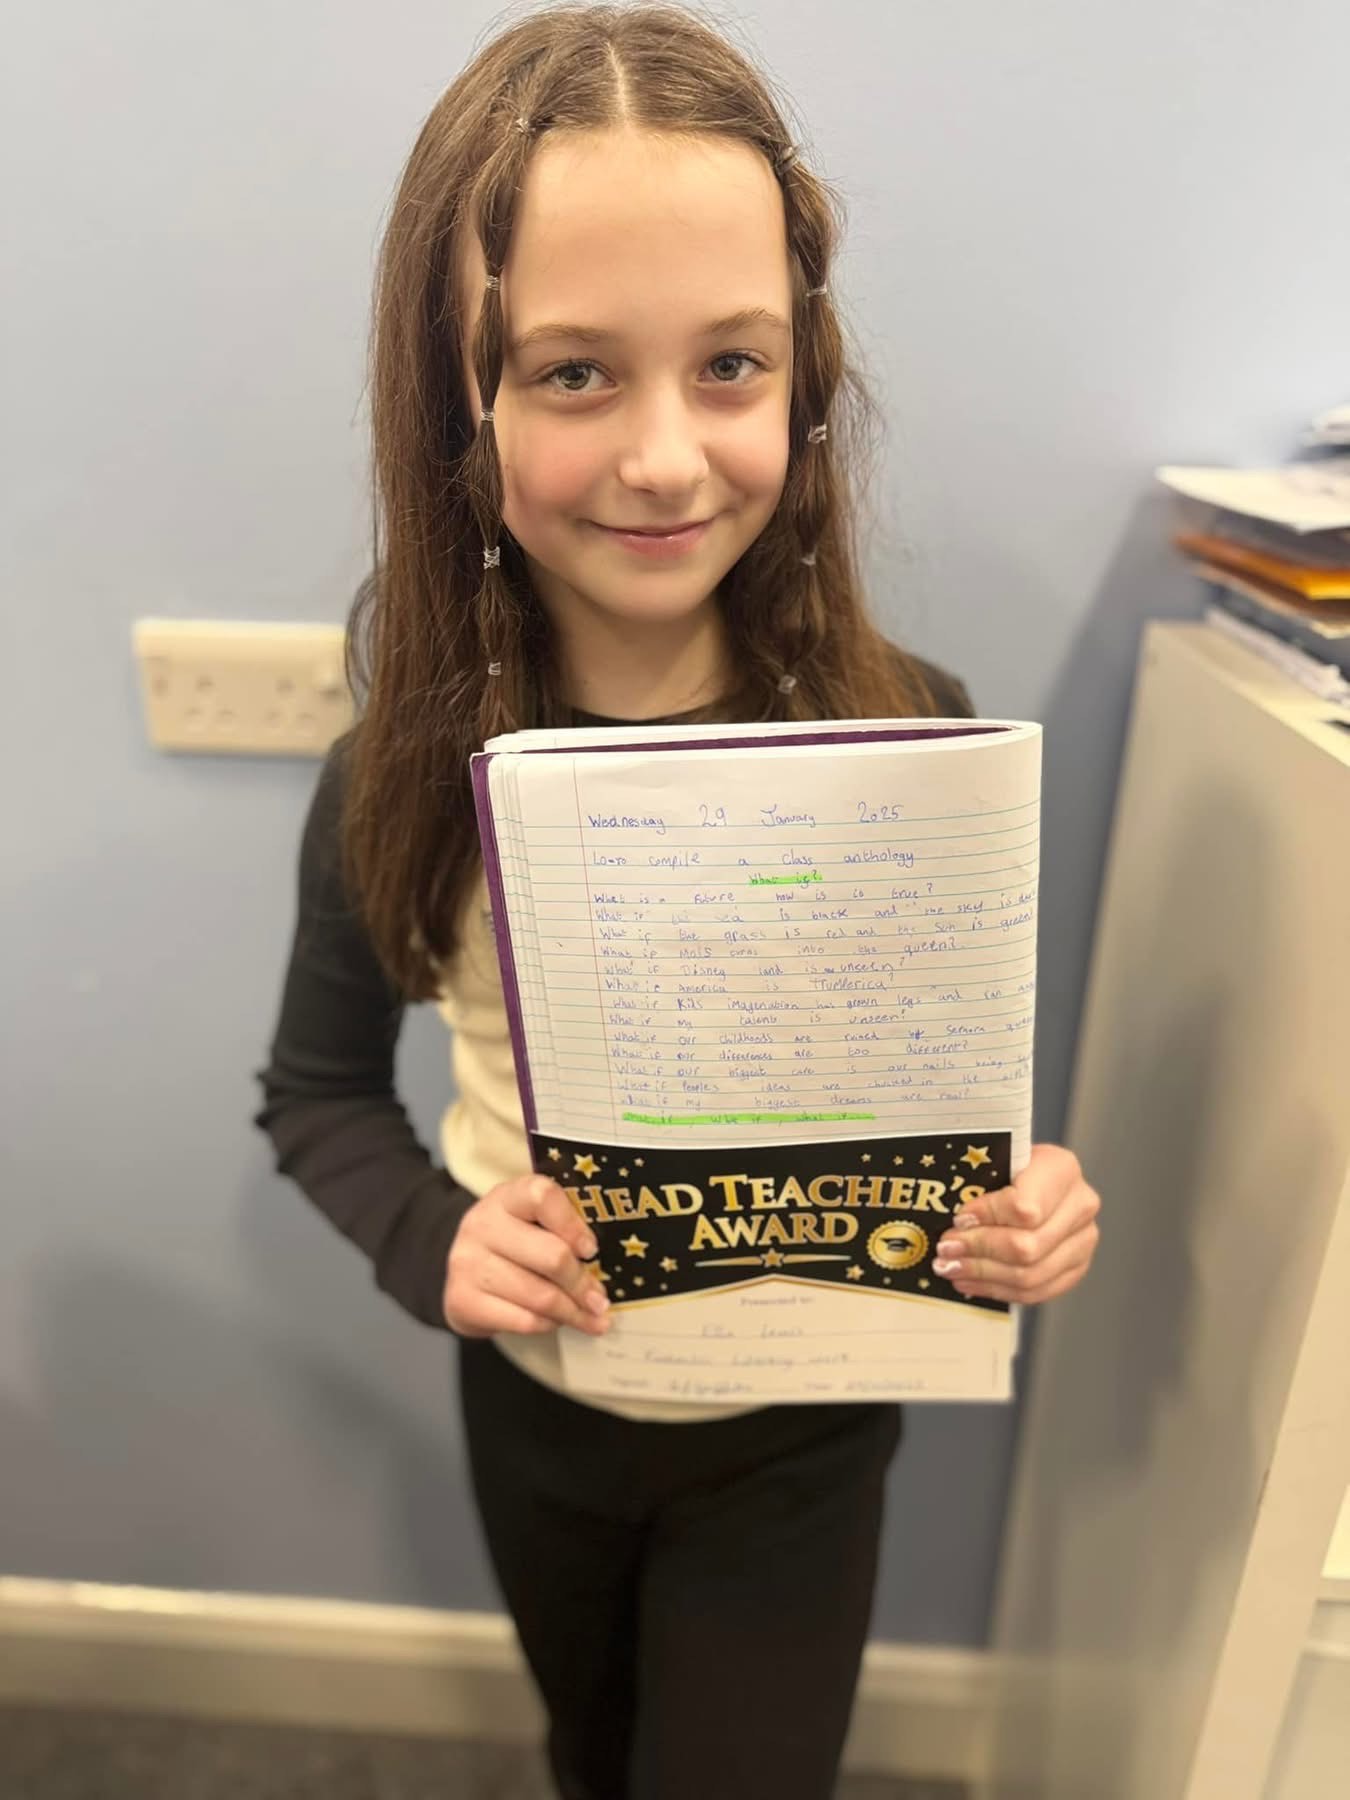 Wednesday 29 January 2025
Lo-to compile a class anthology
What if?
What is a future now is is true?
What if sea is black and the sky is
What if the grass is red and the sun is green
What if Mols turns into the queen?
What if Disney land is unseen?
What if America is Trumerica?
What if Kids imagenation has grown legs and ran
What if my talent is unseen?
What if our childhoods are ruined by
What if our differences are too different?
What if our biggest care is our nails being
What if Peoples ideas are chucked in the
What if my biggest dreams are real?
What if, what if, what if....
HEAD TEACHER'S
AWARD
Presented to:
Ella Lewis
Fantastic Literacy work